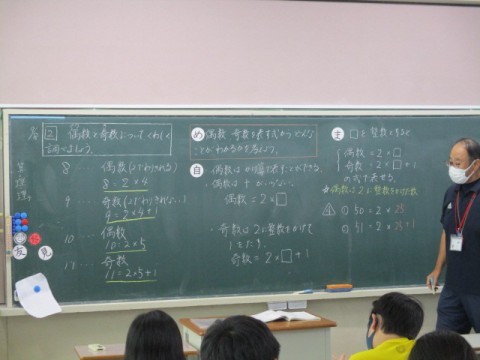 2 偶数と奇数についてくわしく
調べましょう。
8 … 偶数(2でわりきれる)
8=2×4
9 … 奇数(2でわりきれない)
9=2×4+1
10 … 偶数
10=2×5
11 … 奇数
11=2×5+1
友 見
め 偶数、奇数を表す式からどんな
ことがわかるか考えよう。
自
偶数=2×□
・奇数は2に整数をかけて
1をたす。
奇数=2×□+1
ま □を整数とすると
偶数=2×□
奇数=2×□+1
の式で表せる。
偶数は2に整数をかけた数
1 ① 50=2×25
② 51=2×25+1